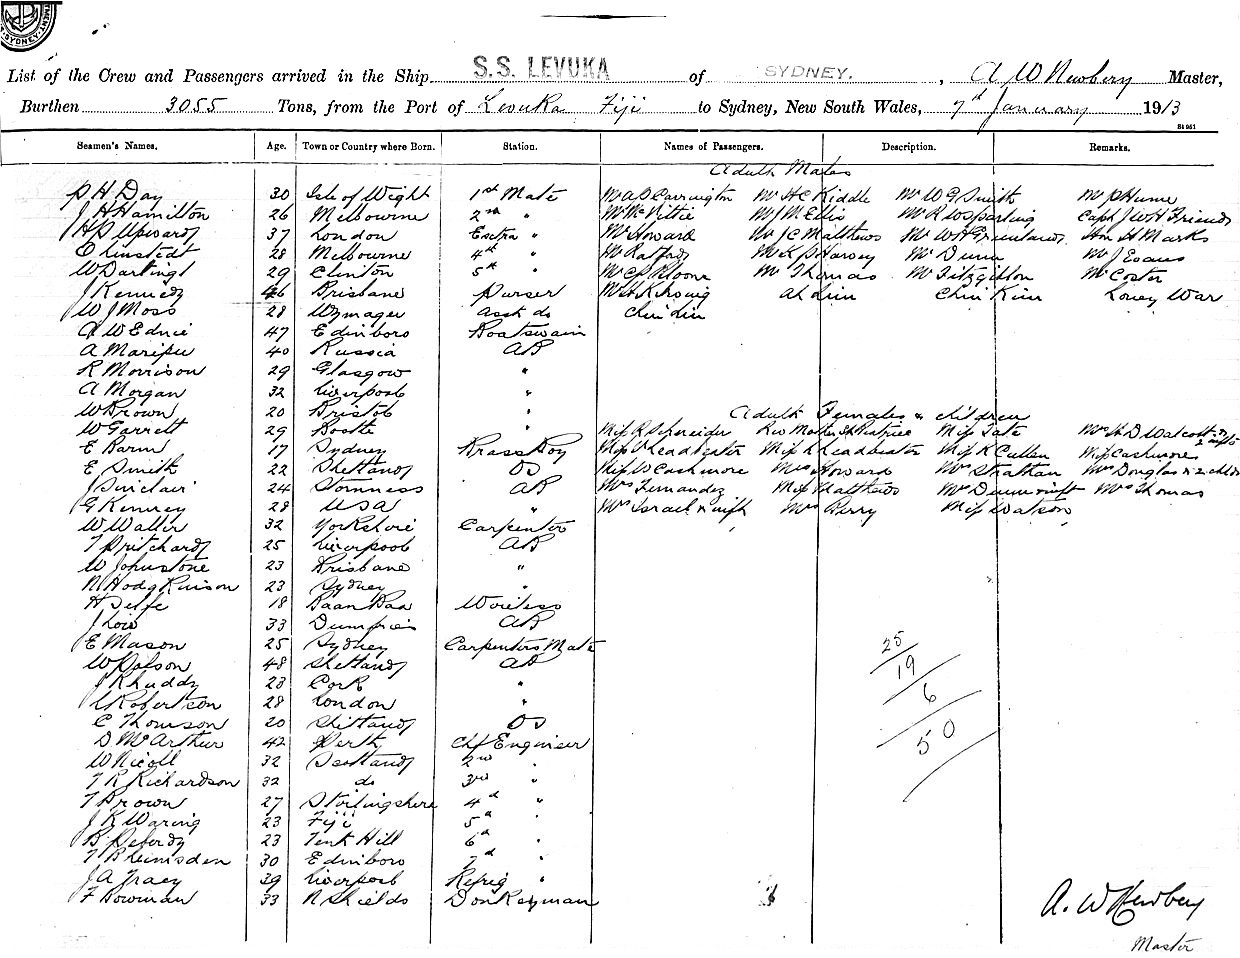 SYDNEY
List of the Crew and Passengers arrived in the Ship S.S. LEVUKA of SYDNEY. , A W Newbery Master,
Burthen 3055 Tons, from the Port of Levuka Fiji to Sydney, New South Wales, 7th January 1913
St 951
Seamen's Names. Age. Town or Country where Born. Station. Names of Passengers. Description. Remarks.
Adult Males
P H Day 30 Isle of Wight 1st Mate Mr A D Carrington Mr H C Kiddle Mr W G Smith Mr P Hume
J H Hamilton 26 Melbourne 2nd " Mr McVittie Mr J M Ellis Mr R W Sperling Capt J W H Friend
H P Upward 37 London Extra " Mr Howard Mr J C Matthews Mr W H Greenland Hon H Marks
28 Melbourne 4th " Mr Ratford Mr K P Harvey Mr Dunn Mr J Evans
W Dartingl 29 Clinton 5th " Mr Thomas Mr Fitzgibbon Mr Coster
J Kennedy 46 Brisbane Purser Mr H K Irving Ah Lim Chin Kim Louey War
W J Moss 28 Wymager Asst do
A W Ednie 47 Edinboro Boatswain
A Maripu 40 Russia AB
R Morrison 29 Glasgow "
A Morgan 32 Liverpool "
W Brown 20 Bristol "
Adult Females & children
W Garrett 29 Bootle " Miss R Schneider Miss Tate
E Barm 17 Sydney Brass Boy Miss V Leadbeater Miss K Leadbeater Miss K Cullen Miss Cashmore
E Smith 22 Shetland OS Miss W Cashmore Mrs Howard Mrs Strathan Mrs Douglas & 2 chldn
J Sinclair 24 Stomness AB Mrs Fernandez Miss Matthews Mrs Dunn & inft Mrs Thomas
G Kenney 28 USA " Mrs Israel & inft Mrs Perry Miss Watson
W Waller 32 Yorkshire Carpenter
T Pritchard 25 Liverpool AB
W Johnstone 23 Brisbane "
N Hodgkinson 23 Sydney "
H Delfe 18 Baan Baa Wireless
J Low 33 Dumfries AB
E Mason 25 Sydney Carpenters Mate
W Polson 48 Shetland AB
J Khuddy 23 Cork "
L Robertson 28 London "
C Thomson 20 Shetland OS
D McArthur 42 Perth Chf Engineer
W Nicoll 32 Scotland 2nd "
T R Richardson 32 do 3rd "
T Brown 27 Stirlingshire 4th "
J K Waring 23 Fiji 5th "
B Peberdy 23 Tent Hill 6th "
T B Lumsden 30 Edinboro 7th "
J A Tracy 39 Liverpool Refrig "
F Bowman 33 N Shields Donkeyman
25
19
6
50
A. W Newbery
Master